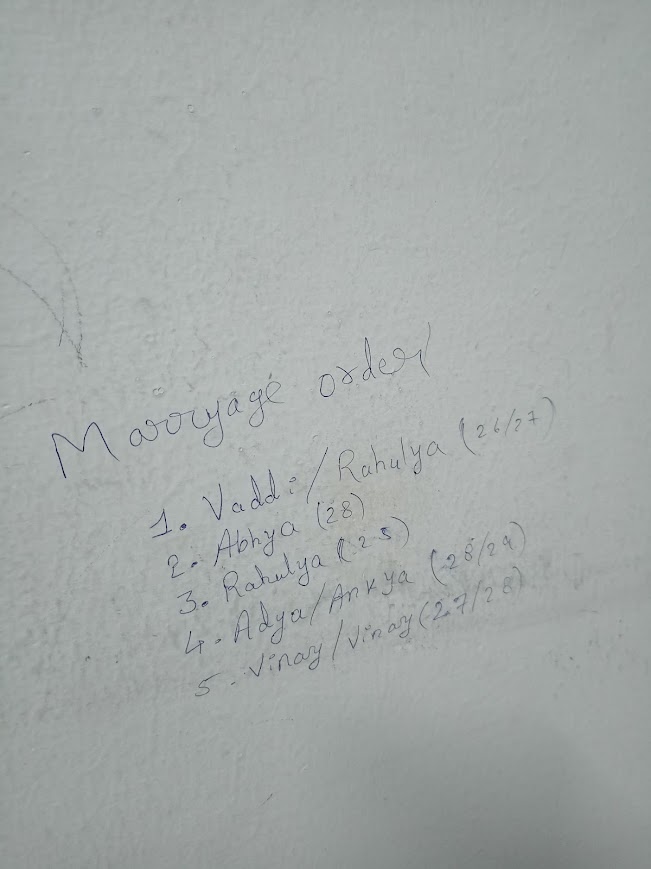 Marryage order
1. Vaddi/Rahulya (26/27)
2. Abhya (28)
3. Rahulya (25)
4. Adya/Ankya (28/29)
5. Vinay/Vinay (27/28)